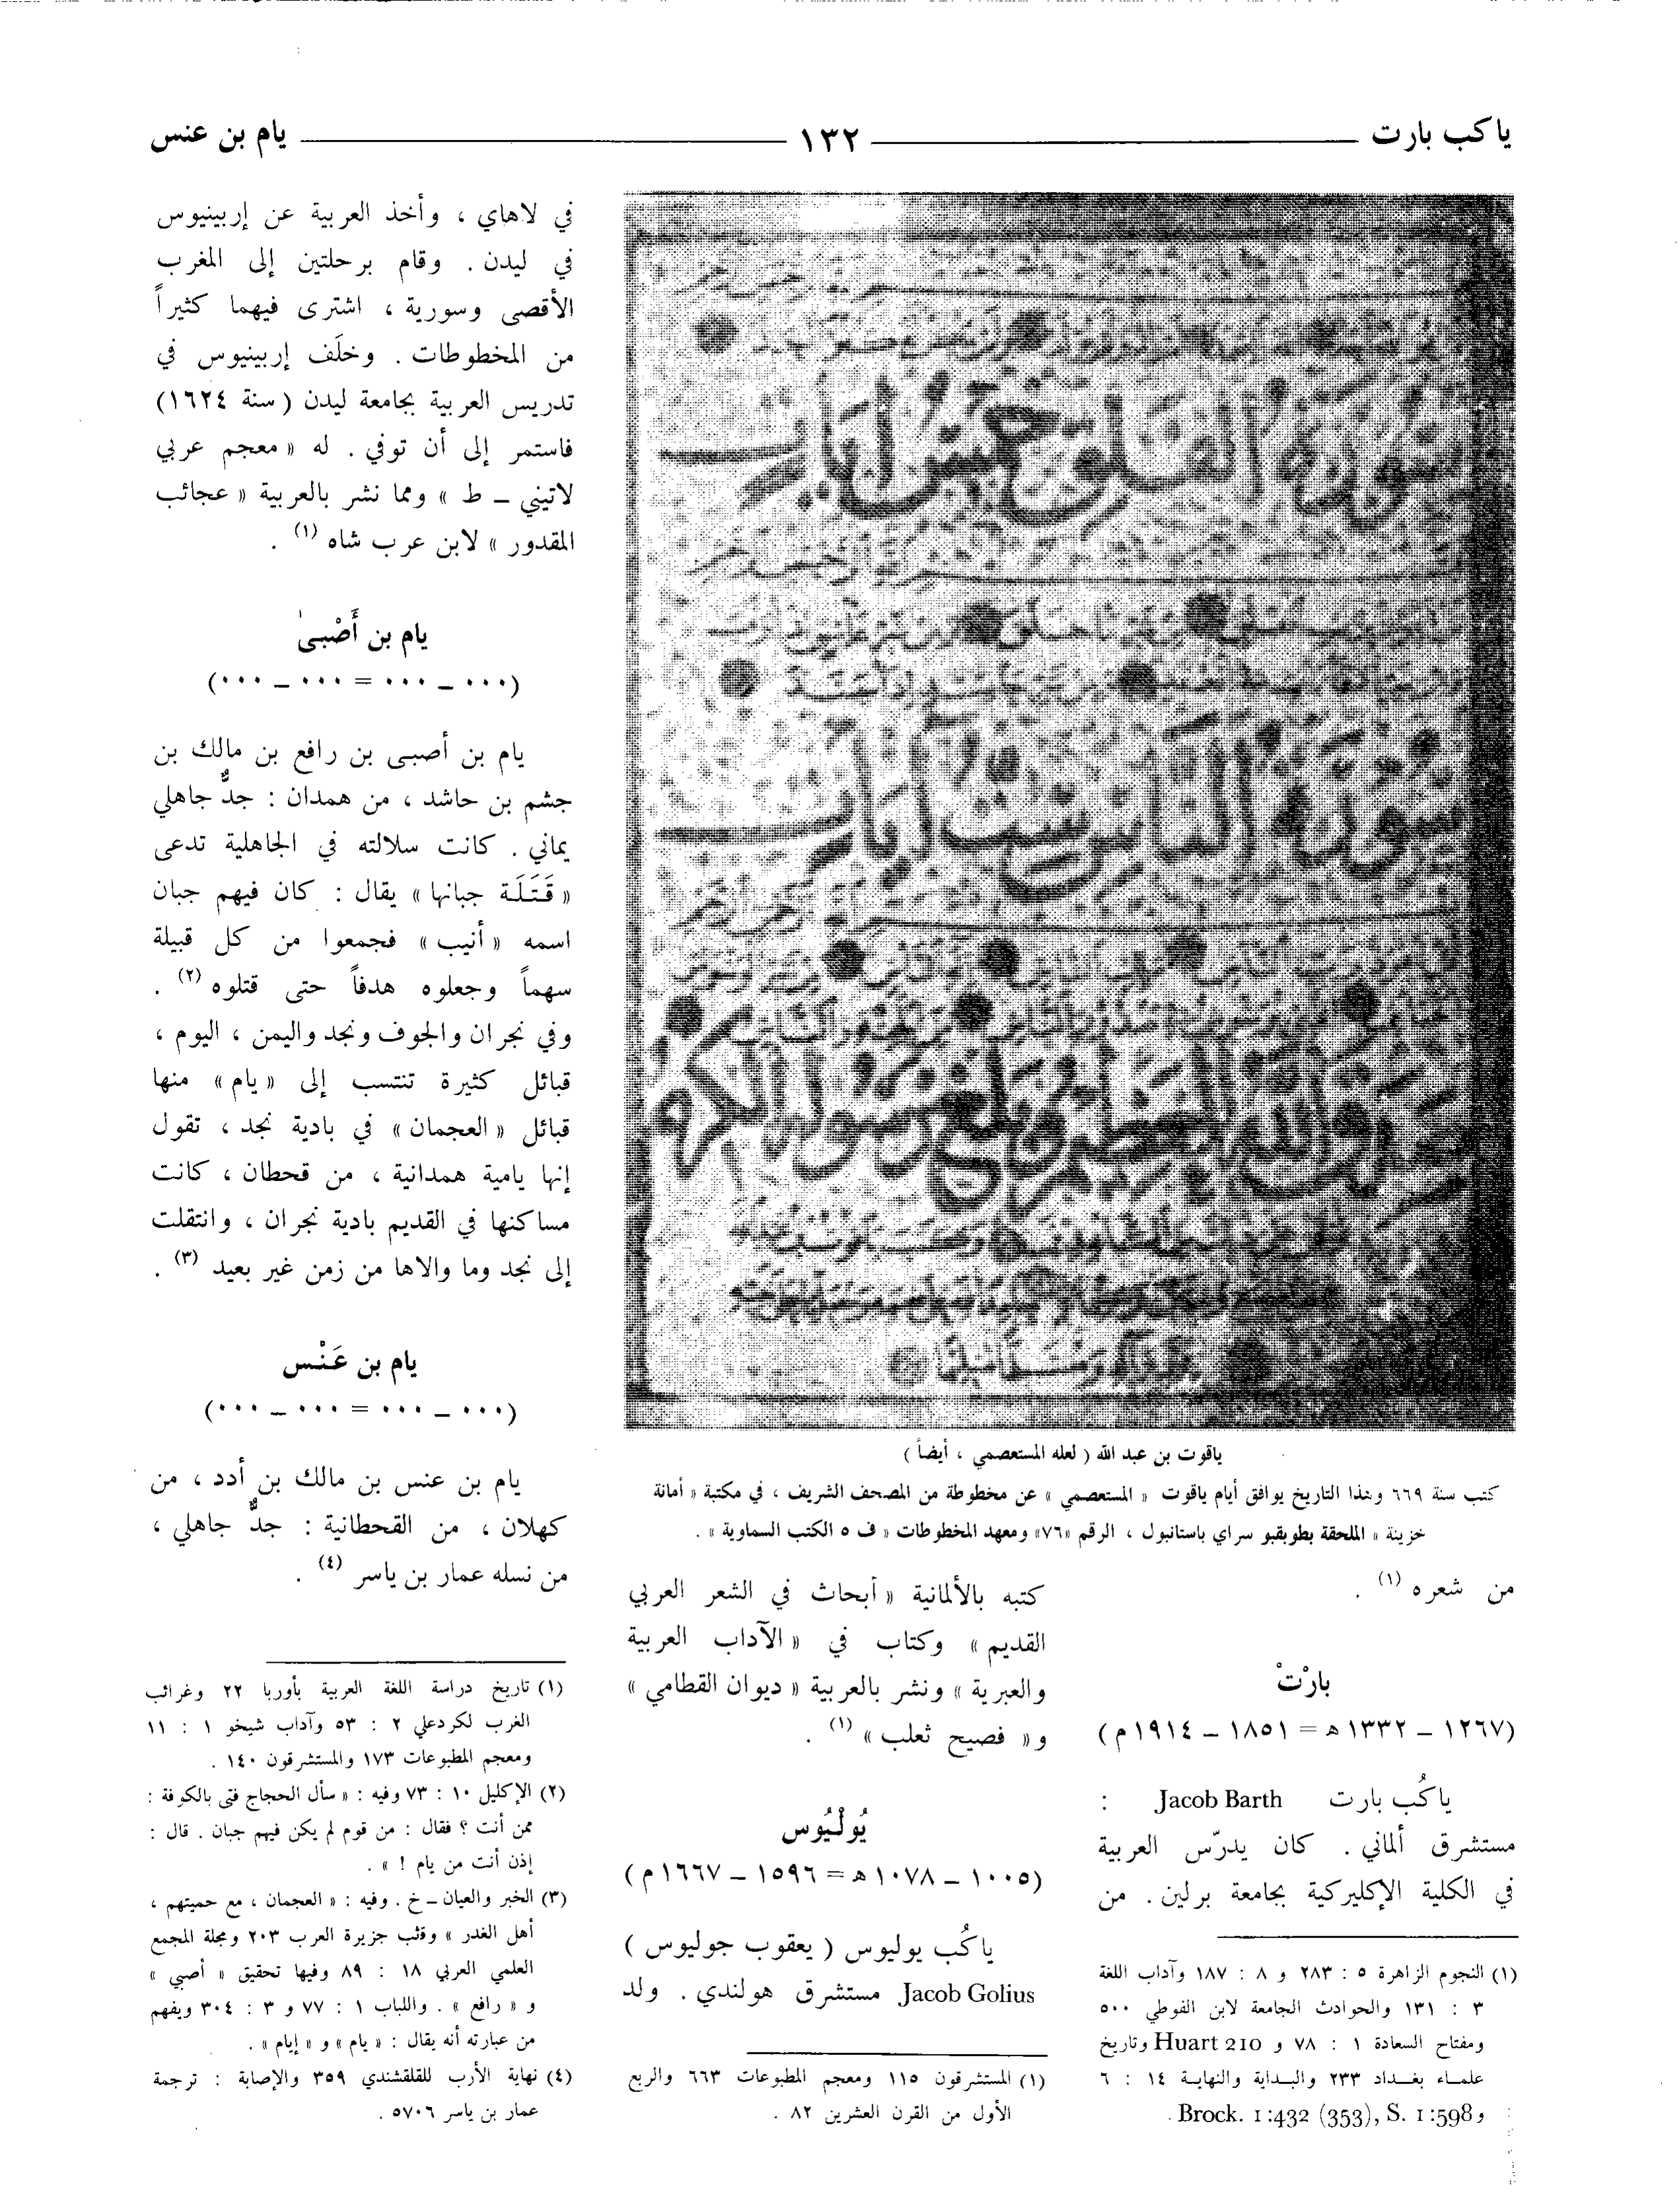 ياكب بارت
١٣٢
يام بن عنس
سورة الفلق خمس آيات
سورة الناس ست آيات
صدق الله العظيم وبلغ رسوله الكريم
ياقوت بن عبد الله ( لعله المستعصمي ، أيضاً )
كتب سنة ٦٦٩ وهذا التاريخ يوافق أيام ياقوت « المستعصمي » عن مخطوطة من المصحف الشريف ، في مكتبة « أمانة
خزينة » الملحقة بطوبقبو سراي باستانبول ، الرقم «٧٦» ومعهد المخطوطات « ف ٥ الكتب السماوية » .
من شعره (١) .
بارْتْ
(١٢٦٧ – ١٣٣٢ ه = ١٨٥١ – ١٩١٤ م)
ياكُب بارت Jacob Barth :
مستشرق ألماني . كان يدرّس العربية
في الكلية الإكليركية بجامعة برلين . من
(١) النجوم الزاهرة ٥ : ٢٨٣ و ٨ : ١٨٧ وآداب اللغة
٣ : ١٣١ والحوادث الجامعة لابن الفوطي ٥٠٠
ومفتاح السعادة ١ : ٧٨ و Huart 210 وتاريخ
علمـاء بغـداد ٢٣٣ والبـداية والنهايـة ١٤ : ٦
و Brock. 1:432 (353), S. 1:598 .
كتبه بالألمانية « أبحاث في الشعر العربي
القديم » وكتاب في « الآداب العربية
والعبرية » ونشر بالعربية « ديوان القطامي »
و« فصيح ثعلب » (١) .
يُولْيُوس
(١٠٠٥ – ١٠٧٨ ه = ١٥٩٦ – ١٦٦٧ م)
ياكُب يوليوس ( يعقوب جوليوس )
Jacob Golius مستشرق هولندي . ولد
(١) المستشرقون ١١٥ ومعجم المطبوعات ٦٦٣ والربع
الأول من القرن العشرين ٨٢ .
في لاهاي ، وأخذ العربية عن إربينيوس
في ليدن . وقام برحلتين إلى المغرب
الأقصى وسورية ، اشترى فيهما كثيراً
من المخطوطات . وخلَف إربينيوس في
تدريس العربية بجامعة ليدن (سنة ١٦٢٤)
فاستمر إلى أن توفي . له « معجم عربي
لاتيني – ط » ومما نشر بالعربية « عجائب
المقدور » لابن عرب شاه (١) .
يام بن أَصْبىٰ
(٠٠٠ – ٠٠٠ = ٠٠٠ – ٠٠٠)
يام بن أصبى بن رافع بن مالك بن
جشم بن حاشد ، من همدان : جدٌّ جاهلي
يماني . كانت سلالته في الجاهلية تدعى
« قَتَلَة جبانها » يقال : كان فيهم جبان
اسمه « أنيب » فجمعوا من كل قبيلة
سهماً وجعلوه هدفاً حتى قتلوه (٢) .
وفي نجران والجوف ونجد واليمن ، اليوم ،
قبائل كثيرة تنتسب إلى « يام » منها
قبائل « العجمان » في بادية نجد ، تقول
إنها يامية همدانية ، من قحطان ، كانت
مساكنها في القديم بادية نجران ، وانتقلت
إلى نجد وما والاها من زمن غير بعيد (٣) .
يام بن عَنْس
(٠٠٠ – ٠٠٠ = ٠٠٠ – ٠٠٠)
يام بن عنس بن مالك بن أدد ، من
كهلان ، من القحطانية : جدٌّ جاهلي ،
من نسله عمار بن ياسر (٤) .
(١) تاريخ دراسة اللغة العربية بأوربا ٢٢ وغرائب
الغرب لكردعلي ٢ : ٥٣ وآداب شيخو ١ : ١١
ومعجم المطبوعات ١٧٣ والمستشرقون ١٤٠ .
(٢) الإكليل ١٠ : ٧٣ وفيه : « سأل الحجاج فتى بالكوفة :
ممن أنت ؟ فقال : من قوم لم يكن فيهم جبان . قال :
إذن أنت من يام ! » .
(٣) الخبر والعيان – خ . وفيه : « العجمان ، مع حميتهم ،
أهل الغدر » وقلب جزيرة العرب ٢٠٣ ومجلة المجمع
العلمي العربي ١٨ : ٨٩ وفيها تحقيق « أصبي »
و « رافع » . واللباب ١ : ٧٧ و ٣ : ٣٠٤ ويفهم
من عبارته أنه يقال : « يام » و « إيام » .
(٤) نهاية الأرب للقلقشندي ٣٥٩ والإصابة : ترجمة
عمار بن ياسر ٥٧٠٦ .